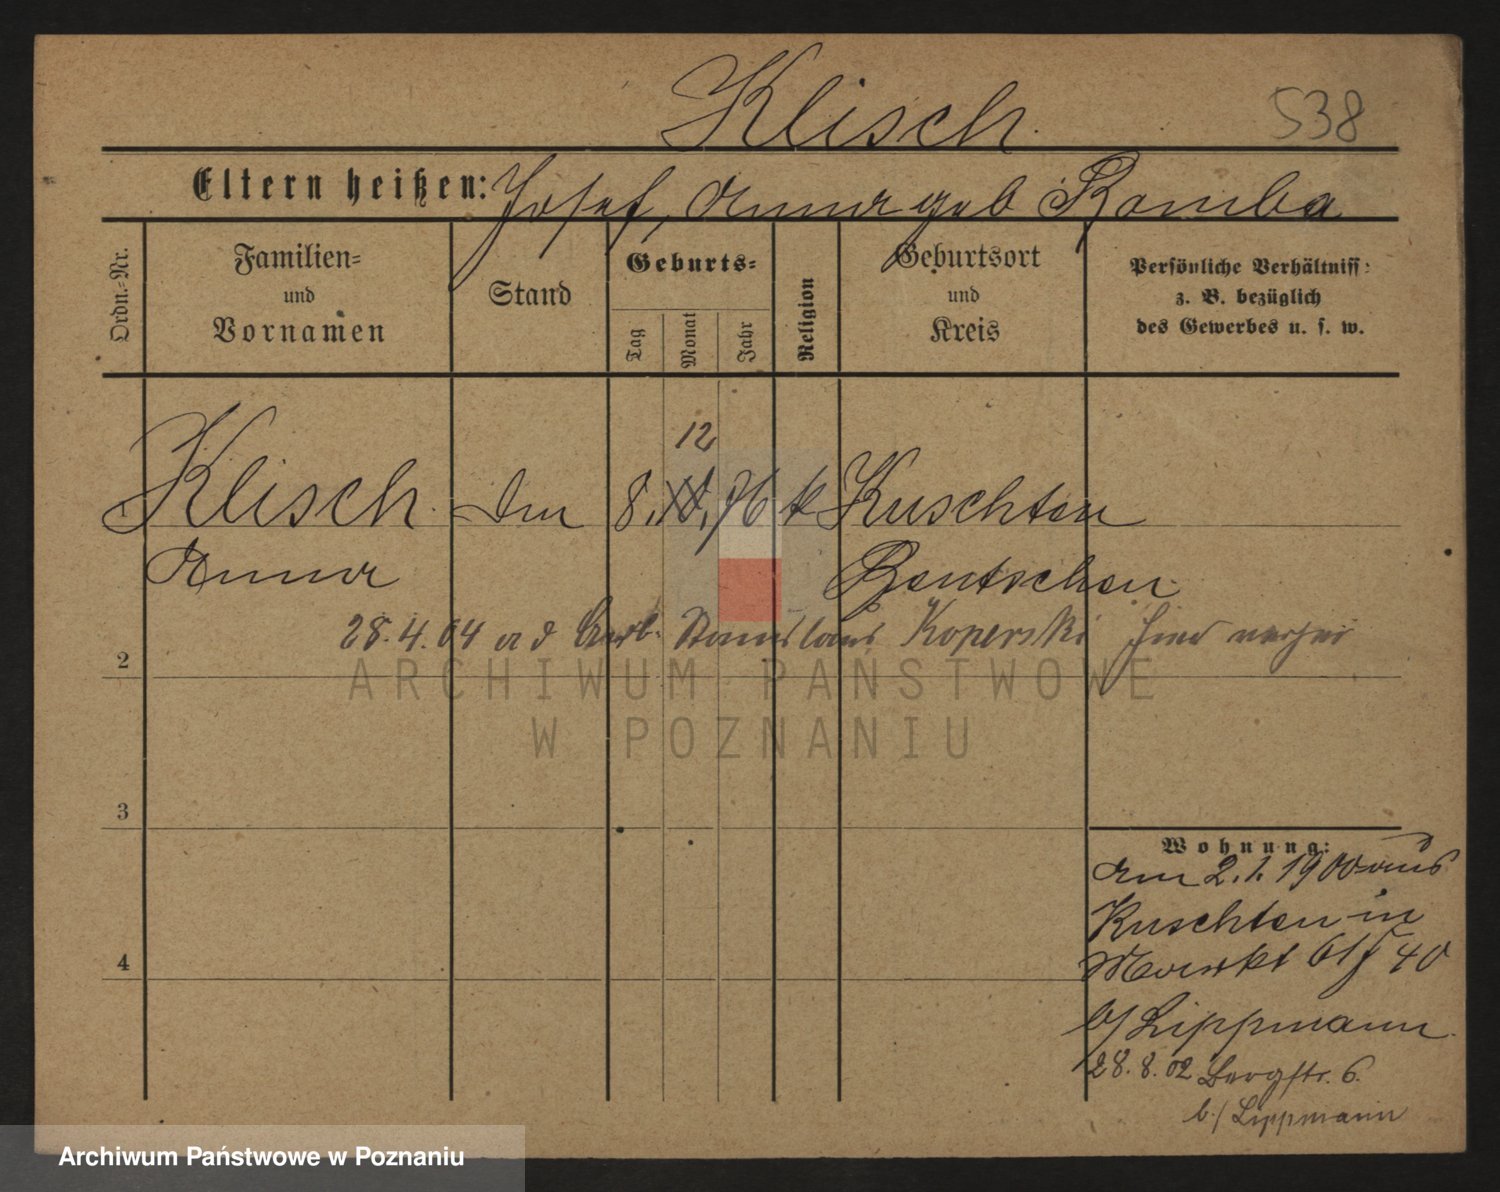 Klisch. 538
Eltern heißen: Josef, Anna geb Bamba
Ordn.-Nr.
Familien=
und
Vornamen
Stand
Geburts=
Tag
Monat
Jahr
Religion
Geburtsort
und
Kreis
Persönliche Verhältniss:
z. B. bezüglich
des Gewerbes u. s. w.
12
Klisch. 8. 76 k Kuschten
Anna Bentschen
28.4.04 a d Arb. Stanislaus Koperski hier
2
3
4
Wohnung:
am 2.1.1900 aus
Kuschten in
Markt 40
b/ Lippmann.
28.8.02 Bergstr. 6.
b./ Lippmann
ARCHIWUM PAŃSTWOWE
W POZNANIU
Archiwum Państwowe w Poznaniu